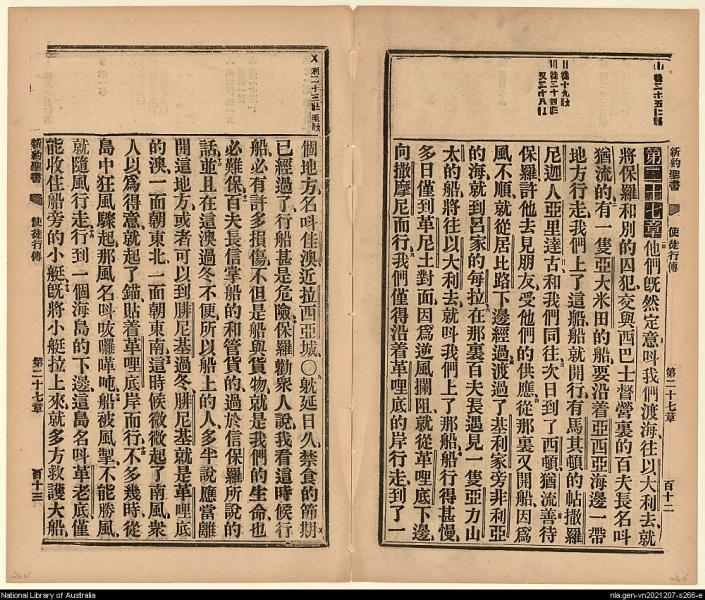 新約聖書
使徒行傳
第二十七章
百十二
第二十七章他們既然定意叫我們渡海、往以大利去、就
將保羅和別的囚犯、交與西巴士督營裏的百夫長名叫
猶流的、有一隻亞大米田的船、要沿着亞西亞海邊一帶
地方行走、我們上了這船、船就開行、有馬其頓的帖撒羅
尼迦人亞里達古和我們同往、次日到了西頓、猶流善待
保羅、許他去見朋友、受他們的供應、從那裏又開船、因爲
風不順、就從居比路下邊經過、渡過了基利家旁非利亞
的海、就到呂家的每拉、在那裏百夫長遇見一隻亞力山
太的船、將往以大利去、就叫我們上了那船、船行得甚慢、
多日僅到革尼土對面、因爲逆風攔阻、就從革哩底下邊、
向撒摩尼而行、我們僅得沿着革哩底的岸行、走到了一
個地方、名叫佳澳、近拉西亞城、〇躭延日久、禁食的節期
已經過了、行船甚是危險、保羅勸衆人說、我看這時候行
船、必有許多損傷、不但是船與貨物、就是我們的生命、也
必難保、百夫長信掌船的和管貨的、過於信保羅所說的
話、並且在這澳過冬不便、所以船上的人、多半說應當離
開這地方、或者可以到腓尼基過冬、腓尼基就是革哩底
的澳、一面朝東北、一面朝東南、這時候微微起了南風、衆
人以爲得意、就起了錨、貼着革哩底岸而行、不多幾時、從
島中狂風驟起、那風名叫
船被風掣、不能勝風、
就隨風行走、行到一個海島的下邊、這島名叫革老底、僅
能收住船旁的小艇、既將小艇拉上來、就多方救護大船、
新約聖書
使徒行傳
第二十七章
百十三
National Library of Australia
nla.gen-vn2021207-s266-e